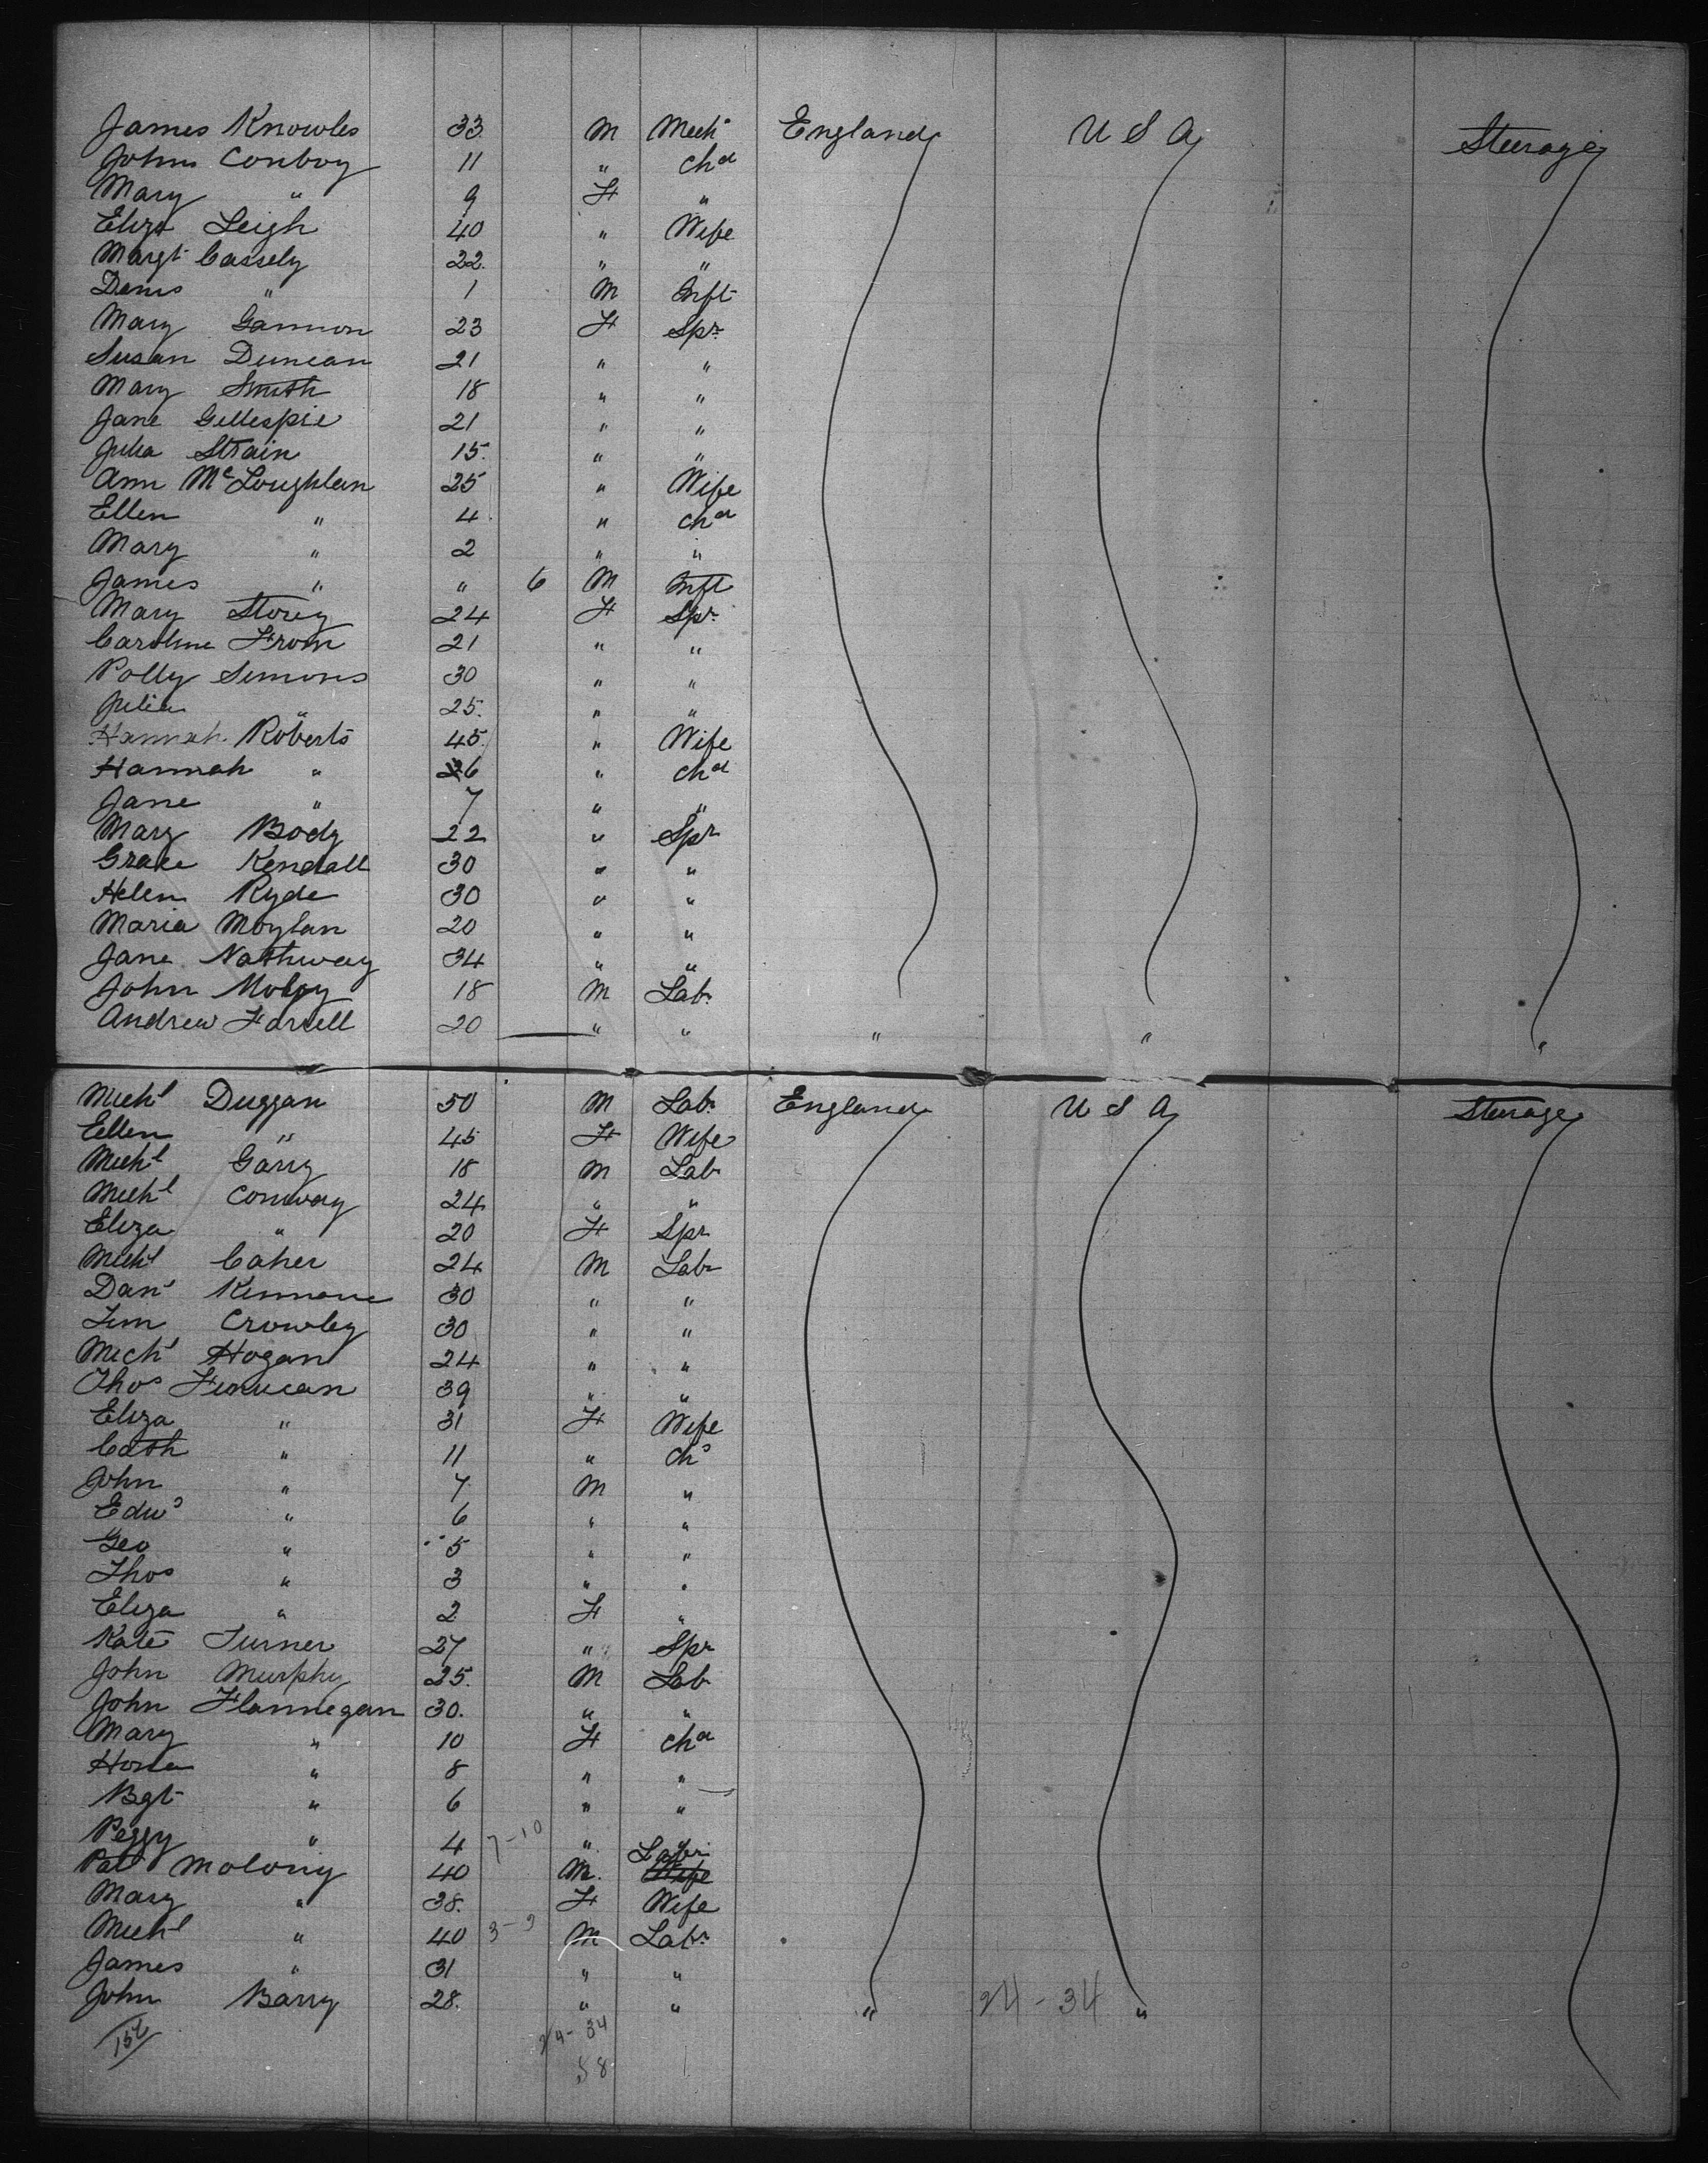 James Knowles 33 M Mech England U S A Steerage
John Conboy 11 " Chd
Mary " 9 F "
Eliza Leigh 40 " Wife
Margt Cassely 22 " "
Denis " 1 M Inft
Mary Gannon 23 F Spr
Susan Duncan 21 " "
Mary Smith 18 " "
Jane Gillespie 21 " "
Julia Strain 15 " "
Ann McLoughlan 25 " Wife
Ellen " 4 " Chd
Mary " 2 " "
James " " 6 M Inft
Mary Storey 24 F Spr
Caroline From 21 " "
Polly Simons 30 " "
Julia " 25 " "
Hannah Roberts 45 " Wife
Hannah " 6 " Chd
Jane " 7 " "
Mary Body 22 " Spr
Grace Kendall 30 " "
Helen Ryde 30 " "
Maria Moylan 20 " "
Jane Nathway 34 " "
John 18 M Labr
Andrew Farrell 20 " " " " "
Michl Duggan 50 M Labr England U S A Steerage
Ellen " 45 F Wife
Michl Garry 18 M Lab
Michl Conway 24 " "
Eliza " 20 F Spr
Michl Caher 24 M Labr
Danl Kinnane 30 " "
Tim Crowley 30 " "
Michl Hogan 24 " "
Thos Finucan 39 " "
Eliza " 31 F Wife
Cath " 11 " Chd
John " 7 M "
Edwd " 6 " "
Geo " 5 " "
Thos " 3 " "
Eliza " 2 F "
Kate Turner 27 " Spr
John Murphy 25 M Lab
John Flannegan 30 " "
Mary " 10 F Chd
Hona " 8 " "
Bgt " 6 " "
Peggy " 4 7-10 " "
Pat Molony 40 M Labr Wife
Mary " 38 F Wife
Michl " 40 3-9 M Labr
James " 31 " "
John Barry 28 " " " 24-34 "
24-34
58